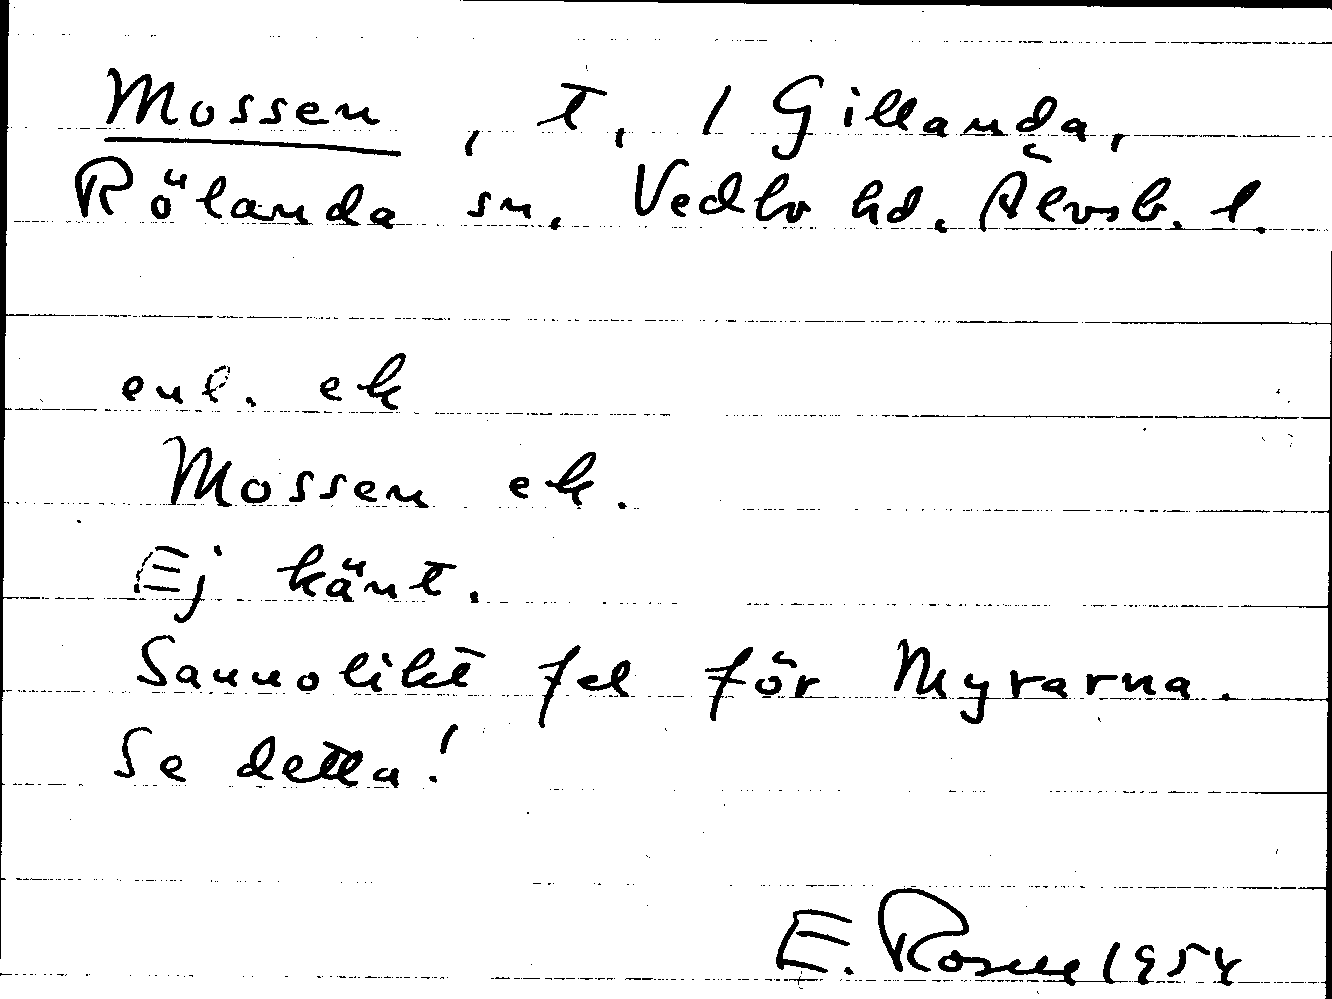 Mossen, t, 1 Gillanda,
Rölanda sn. Vedbo hd. Älvsb. l.
enl. ek
Mossen ek.
Ej känt.
Sannolikt fel för Myrarna.
Se detta!
E. Rosell 1954